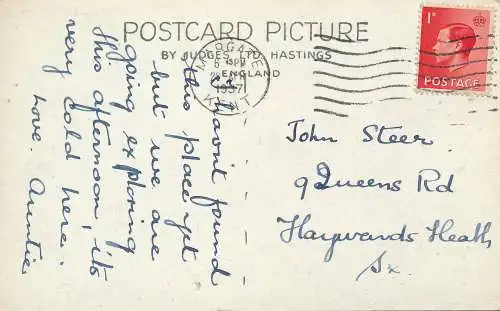 POSTCARD PICTURE
BY JUDGES LTD HASTINGS
ENGLAND
MARGATE
KENT
1937
1D
POSTAGE
I havn't found
this place yet
but we are
going exploring
this afternoon, its
very cold here.
Love. Auntie
John Steer.
9 Queens Rd
Haywards Heath
Sx.